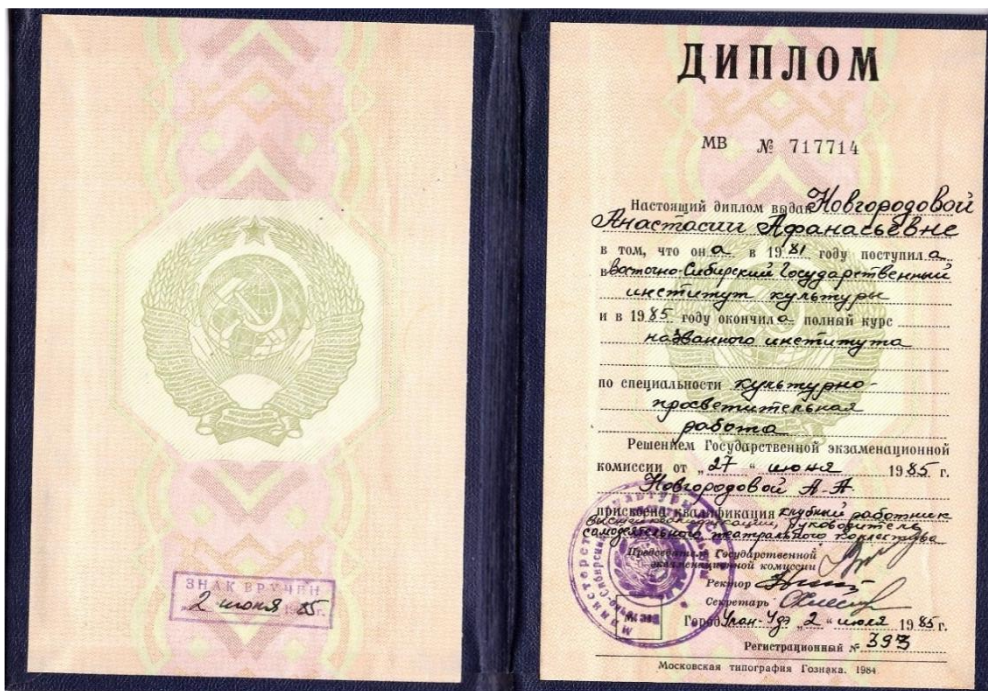 ЗНАК ВРУЧЕН
2 июня 1985.
ДИПЛОМ
МВ № 717714
Настоящий диплом выдан Новгородовой
Анастасии Афанасьевне
в том, что он а в 1981 году поступил а
в Восточно-Сибирский Государственный
институт культуры
и в 1985 году окончил а полный курс
названного института
по специальности культурно-
просветительная
работа
Решением Государственной экзаменационной
комиссии от „27“ июня 1985 г.
Новгородовой А.А
присвоена квалификация клубный работник
высшей квалификации, руководитель
самодеятельного театрального коллектива
Председатель Государственной
экзаменационной комиссии
Ректор
Секретарь
Город Улан-Удэ „2“ июля 1985 г.
Регистрационный № 393
Московская типография Гознака. 1984.